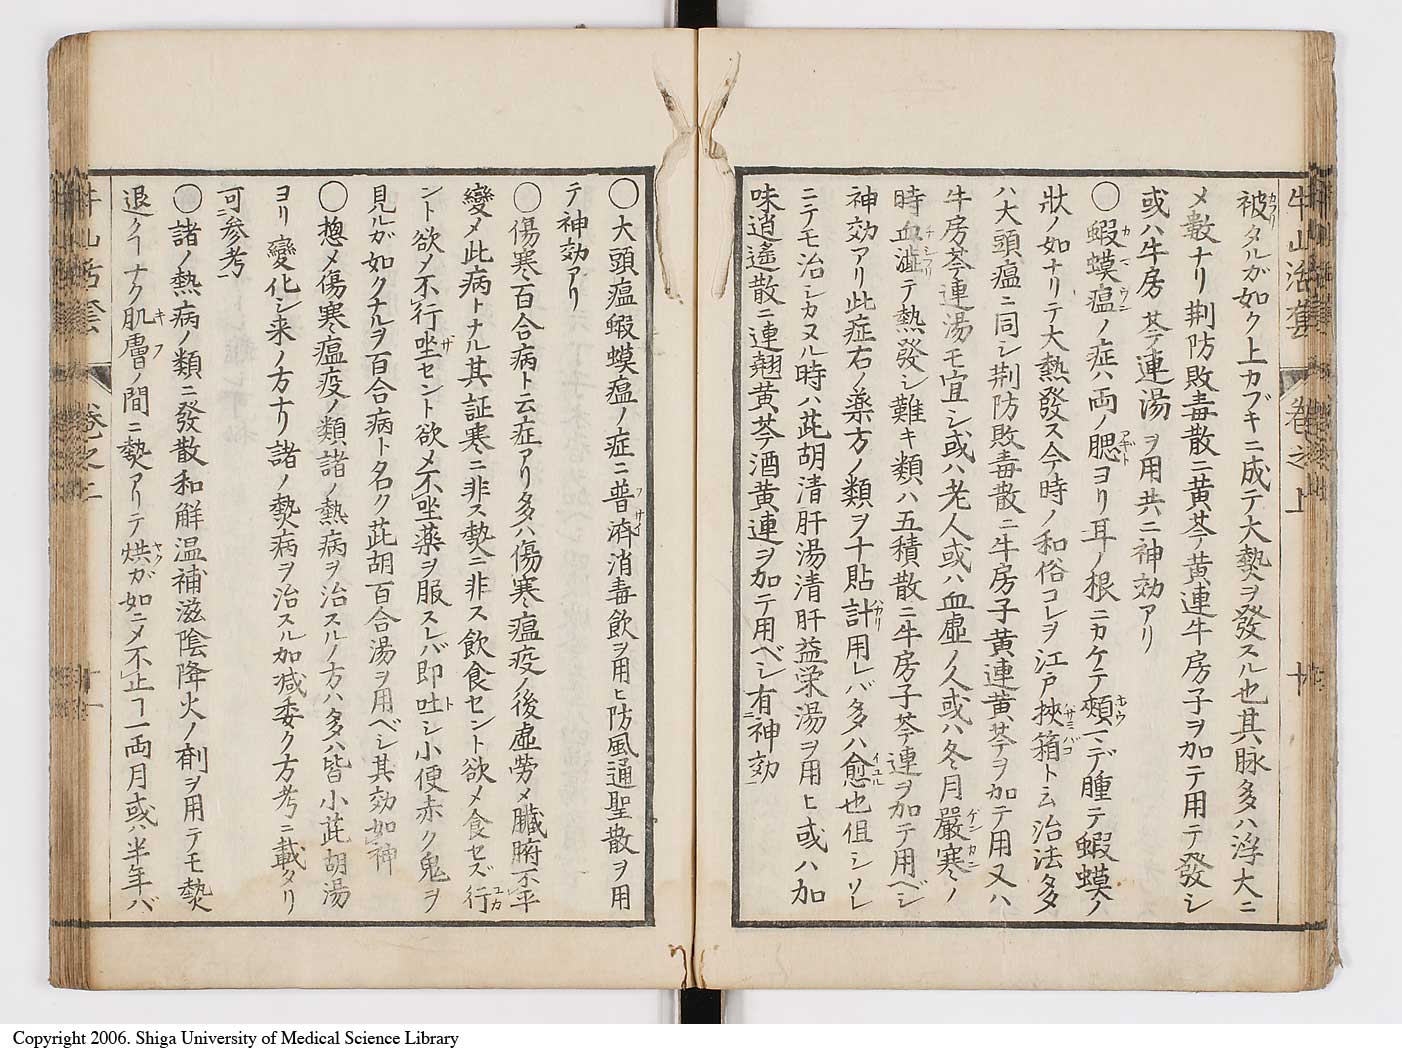 牛山活套 卷之上 十
被タルガ如ク上カブキニ成テ大𤍠ヲ發スル也其脉多ハ浮大ニ
メ數ナリ荆防敗毒散ニ黄芩黄連牛房子ヲ加テ用テ發シ
或ハ牛房芩連湯ヲ用共ニ神効アリ
〇蝦蟆瘟ノ症ハ両ノ腮ヨリ耳ノ根ニカケテ頰マデ腫テ蝦蟆ノ
狀ノ如ナリテ大熱發ス今時ノ和俗コレヲ江戸挾箱ト云治法多
ハ大頭瘟ニ同シ荆防敗毒散ニ牛房子黄連黄芩ヲ加テ用又ハ
牛房芩連湯モ宜シ或ハ老人或ハ血虚ノ人或ハ冬月嚴寒ノ
時血澁テ熱發シ難キ類ハ五積散ニ牛房子芩連ヲ加テ用ベシ
神効アリ此症右ノ藥方ノ類ヲ十貼計用レバ多ハ愈也但シソレ
ニテモ治シカヌル時ハ茈胡清肝湯清肝益栄湯ヲ用ヒ或ハ加
味逍遙散ニ連翹黄芩酒黄連ヲ加テ用ベシ有神効
〇大頭瘟蝦蟆瘟ノ症ニ普濟消毒飲ヲ用ヒ防風通聖散ヲ用
テ神効アリ
〇傷寒百合病ト云症アリ多ハ傷寒瘟疫ノ後虚勞メ臓腑不平
變メ此病トナル其証寒ニ非ス𤍠ニ非ス飲食セント欲メ食セズ行
ント欲メ不行坐セント欲メ不坐藥ヲ服スレバ即吐シ小便赤ク鬼ヲ
見ルガ如クナルヲ百合病ト名ク茈胡百合湯ヲ用ベシ其効如神
〇揔メ傷寒瘟疫ノ類諸ノ熱病ヲ治スルノ方ハ多ハ皆小茈胡湯
ヨリ變化シ来ノ方ナリ諸ノ𤍠病ヲ治スル加减委ク方考ニ載タリ
可参考
〇諸ノ熱病ノ類ニ發散和解温補滋陰降火ノ劑ヲ用テモ𤍠
退クヿナク肌膚ノ間ニ𤍠アリテ烘ガ如ニメ不止ヿ一両月或ハ半年バ
牛山活套 卷之上 十一